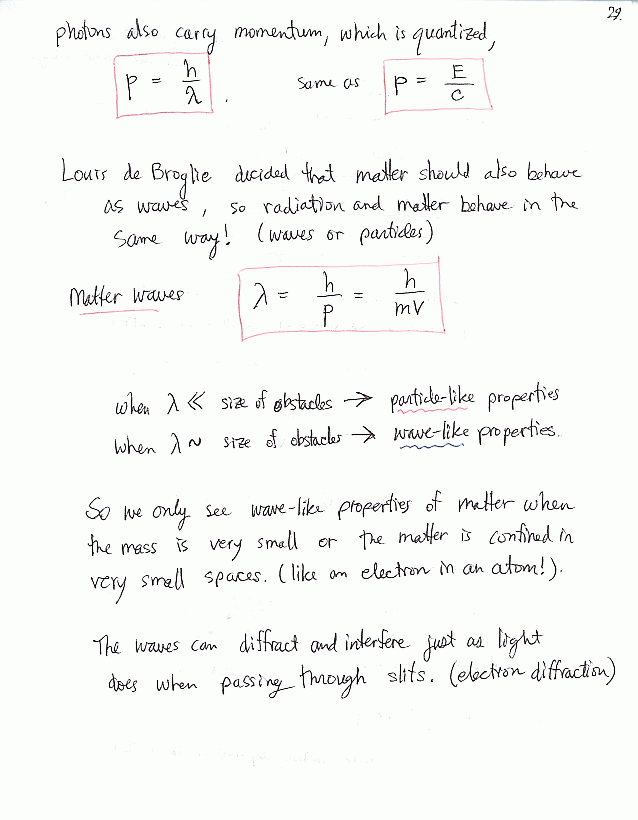 29.
photons also carry momentum, which is quantized,
p = h/λ . same as p = E/c
Louis de Broglie decided that matter should also behave
as waves, so radiation and matter behave in the
same way! (waves or particles)
Matter waves λ = h/p = h/mv
when λ ≪ size of obstacles → particle-like properties
when λ ~ size of obstacles → wave-like properties.
So we only see wave-like properties of matter when
the mass is very small or the matter is confined in
very small spaces. (like an electron in an atom!).
The waves can diffract and interfere just as light
does when passing through slits. (electron diffraction)